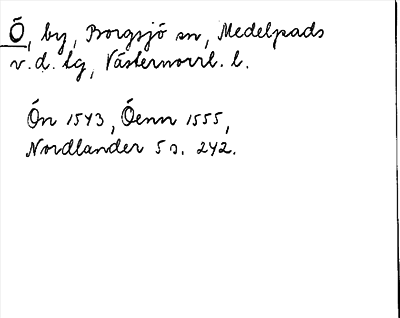 Ö, by, Borgsjö sn, Medelpads
v. d. tg, Västernorrl. l.
Ön 1543, Öenn 1555,
Nordlander 5 s. 242.